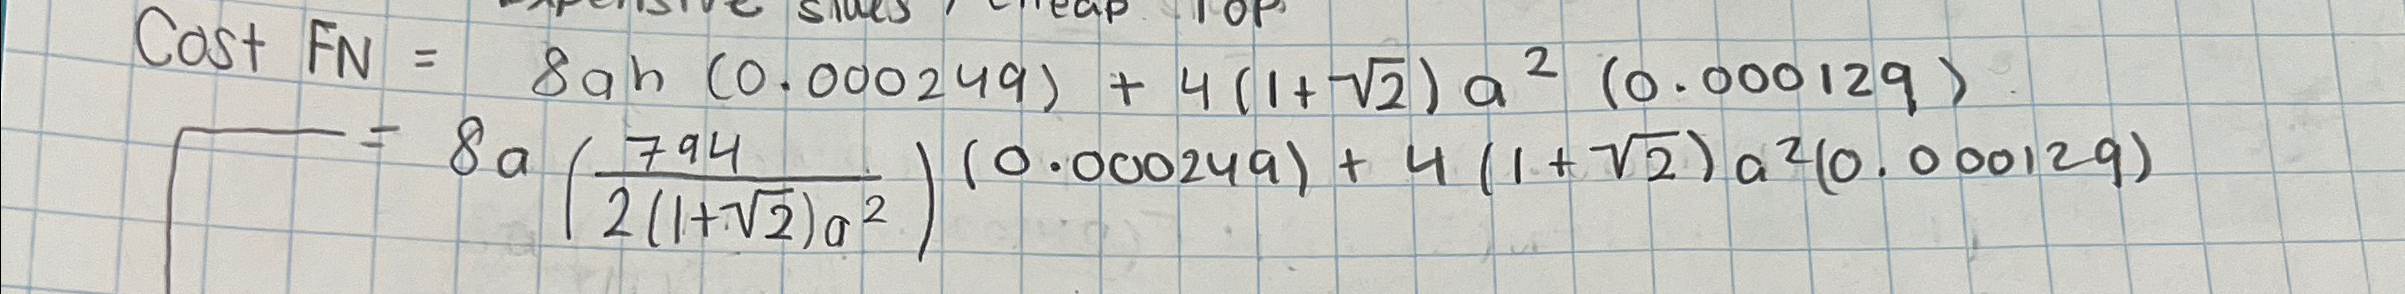 expensive sides, cheap Top
Cost FN = 8ah (0.000249) + 4(1+√2)a² (0.000129)
= 8a (794/(2(1+√2)a²)) (0.000249) + 4(1+√2)a²(0.000129)